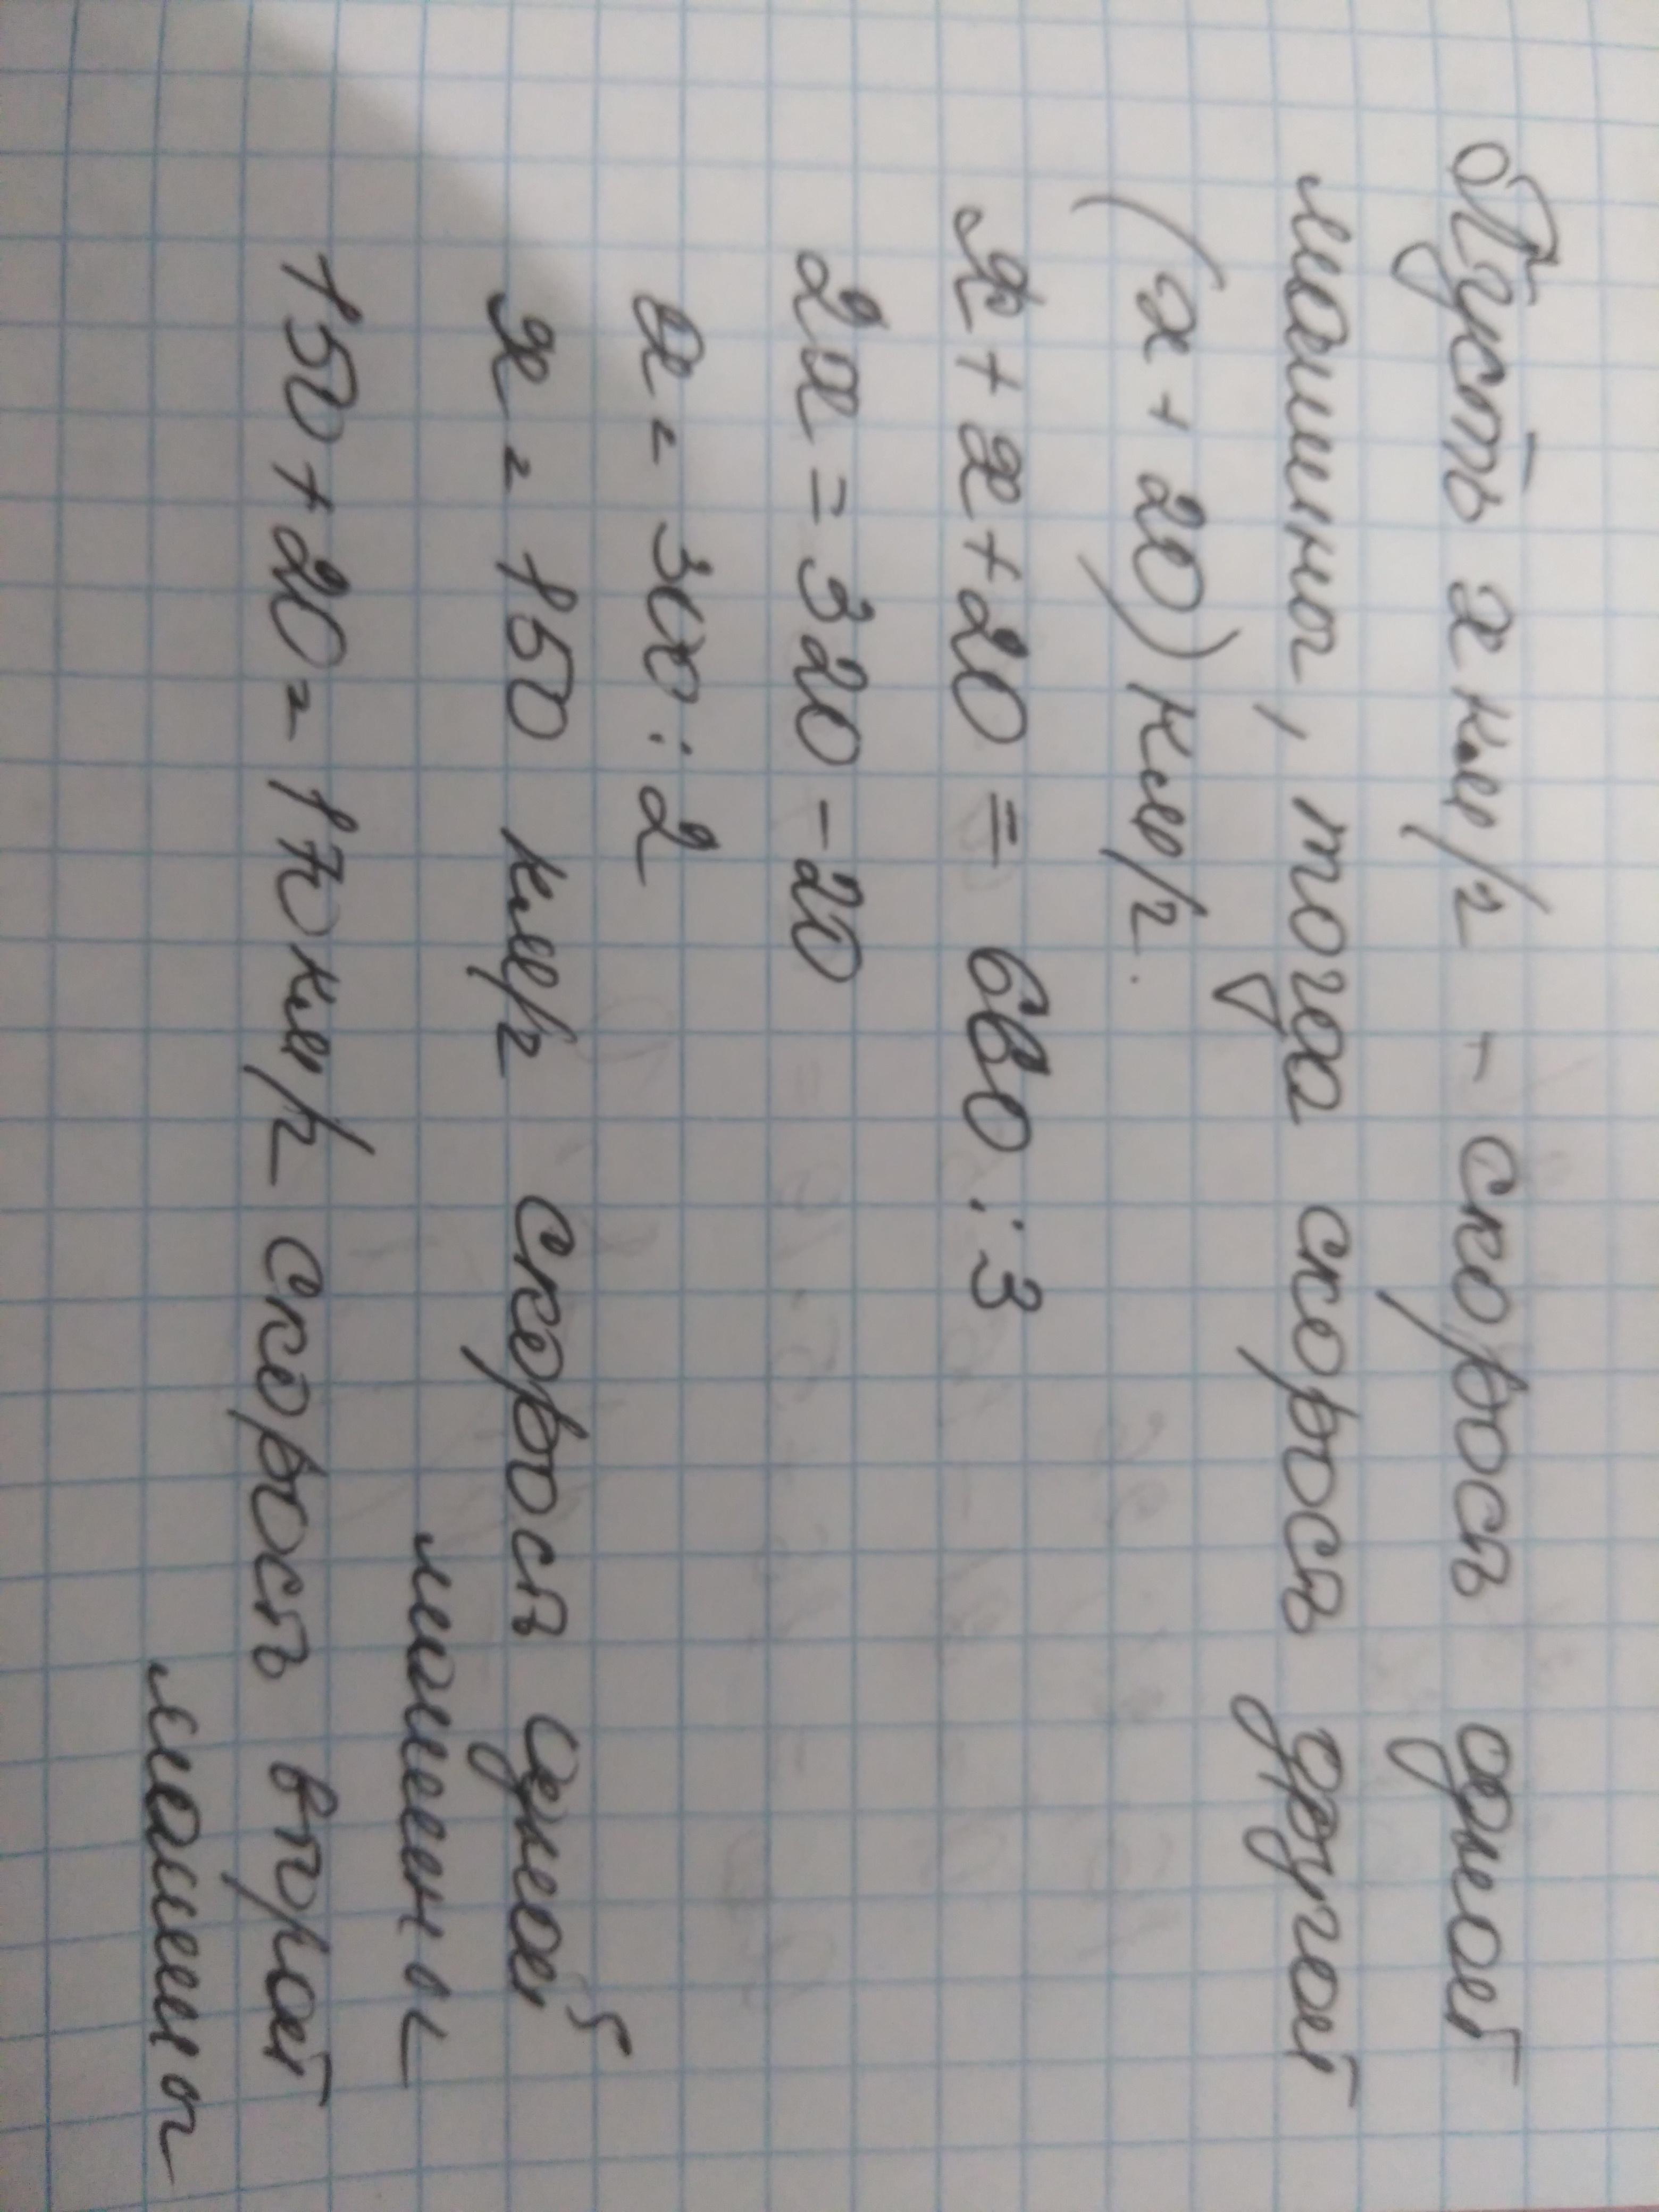 Пусть x км/ч - скорость одной
машины, тогда скорость другой
(x + 20) км/ч.
x + x + 20 = 660 : 3
2x = 320 - 20
x = 300 : 2
x = 150 км/ч скорость одной
машины
150 + 20 = 170 км/ч скорость второй
машины